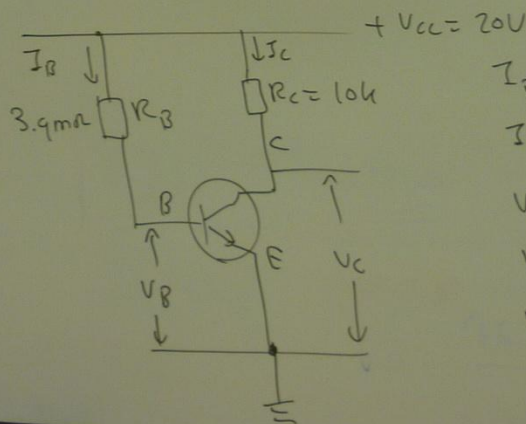 + VCC = 20V
IB
IC
3.9mΩ
RB
RC = 10k
C
B
E
VB
VC